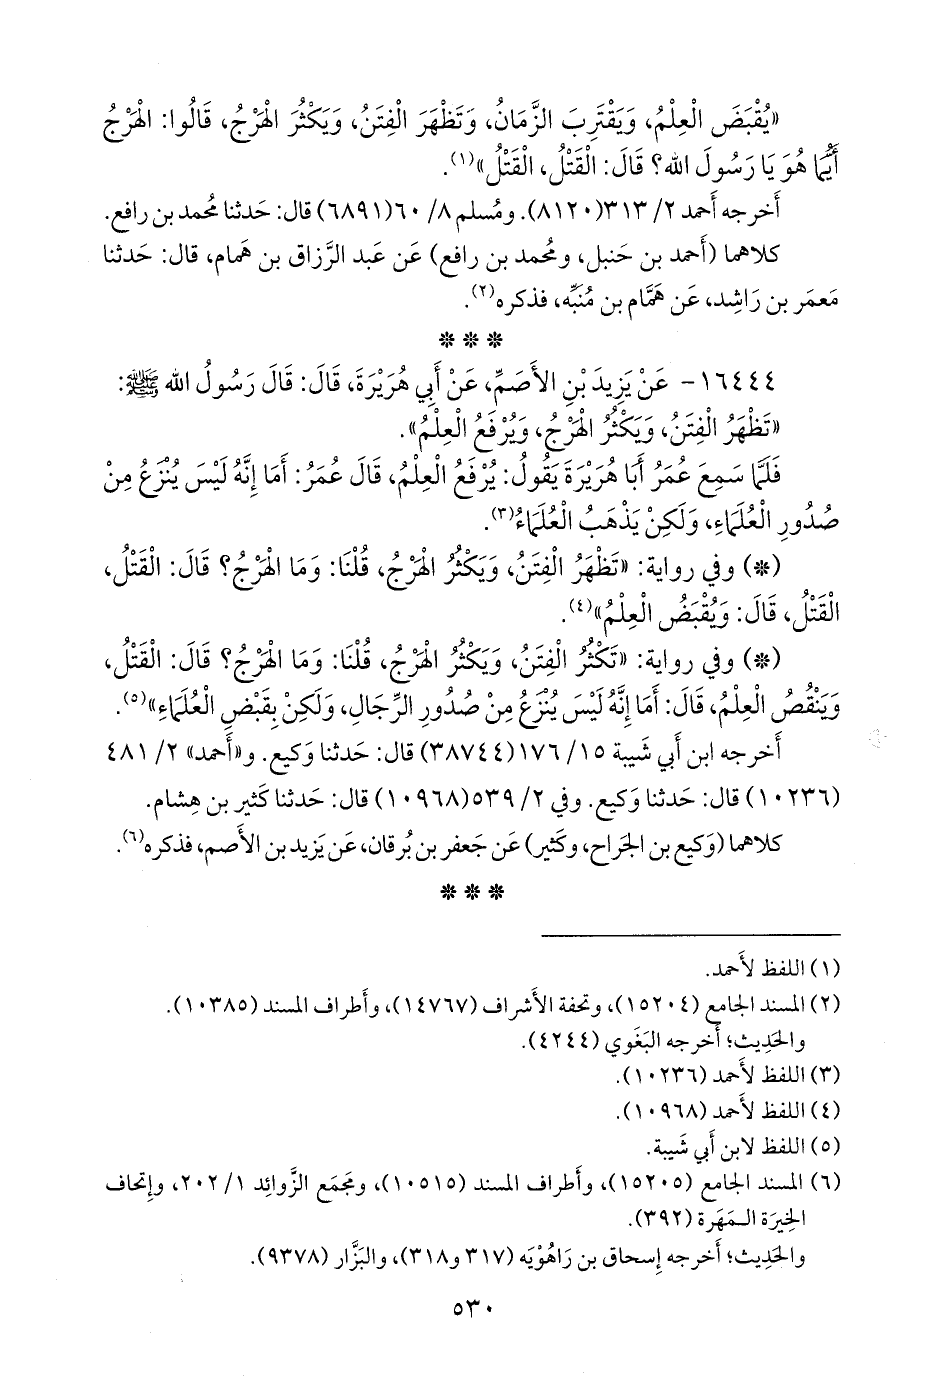 «يُقْبَضَ الْعِلْمُ، وَيَقْتَرِبَ الزَّمَانُ، وَتَظْهَرَ الْفِتَنُ، وَيَكْثُرَ الْهَرْجُ، قَالُوا: الْهَرْجُ
أَيُّمَا هُوَ يَا رَسُولَ الله؟ قَالَ: الْقَتْلُ، الْقَتْلُ»(١).
أَخرجه أَحمد ٢/ ٣١٣(٨١٢٠). ومُسلم ٨/ ٦٠(٦٨٩١) قال: حَدثنا مُحمد بن رافع.
كلاهما (أَحمد بن حَنبل، ومُحمد بن رافع) عَن عَبد الرَّزاق بن هَمام، قال: حَدثنا
مَعمَر بن رَاشِد، عَن هَمَّام بن مُنَبِّه، فذكره(٢).
❋ ❋ ❋
١٦٤٤٤- عَنْ يَزِيدَ بْنِ الأَصَمِّ، عَنْ أَبِي هُرَيْرَةَ، قَالَ: قَالَ رَسُولُ الله ﷺ:
«تَظْهَرُ الْفِتَنُ، وَيَكْثُرُ الْهَرْجُ، وَيُرْفَعُ الْعِلْمُ».
فَلَمَّا سَمِعَ عُمَرُ أَبَا هُرَيْرَةَ يَقُولُ: يُرْفَعُ الْعِلْمُ، قَالَ عُمَرُ: أَمَا إِنَّهُ لَيْسَ يُنْزَعُ مِنْ
صُدُورِ الْعُلَمَاءِ، وَلَكِنْ يَذْهَبُ الْعُلَمَاءُ(٣).
(❋) وفي رواية: «تَظْهَرُ الْفِتَنُ، وَيَكْثُرُ الْهَرْجُ، قُلْنَا: وَمَا الْهَرْجُ؟ قَالَ: الْقَتْلُ،
الْقَتْلُ، قَالَ: وَيُقْبَضُ الْعِلْمُ»(٤).
(❋) وفي رواية: «تَكْثُرُ الْفِتَنُ، وَيَكْثُرُ الْهَرْجُ، قُلْنَا: وَمَا الْهَرْجُ؟ قَالَ: الْقَتْلُ،
وَيَنْقُصُ الْعِلْمُ، قَالَ: أَمَا إِنَّهُ لَيْسَ يُنْزَعُ مِنْ صُدُورِ الرِّجَالِ، وَلَكِنْ بِقَبْضِ الْعُلَمَاءِ»(٥).
أَخرجه ابن أَبي شَيبة ١٥/ ١٧٦(٣٨٧٤٤) قال: حَدثنا وَكيع. و«أَحمد» ٢/ ٤٨١
(١٠٢٣٦) قال: حَدثنا وَكيع. وفي ٢/ ٥٣٩(١٠٩٦٨) قال: حَدثنا كَثير بن هِشام.
كلاهما (وَكيع بن الجَراح، وكَثير) عَن جَعفر بن بُرقان، عَن يَزيد بن الأَصم، فذكره(٦).
❋ ❋ ❋
(١) اللفظ لأَحمد.
(٢) المسند الجامع (١٥٢٠٤)، وتحفة الأَشراف (١٤٧٦٧)، وأَطراف المسند (١٠٣٨٥).
والحَدِيث؛ أَخرجه البَغَوي (٤٢٤٤).
(٣) اللفظ لأَحمد (١٠٢٣٦).
(٤) اللفظ لأَحمد (١٠٩٦٨).
(٥) اللفظ لابن أَبي شَيبة.
(٦) المسند الجامع (١٥٢٠٥)، وأَطراف المسند (١٠٥١٥)، ومَجمَع الزَّوائِد ١/ ٢٠٢، وإِتحاف
الخِيرَة المَهَرة (٣٩٢).
والحَدِيث؛ أَخرجه إِسحاق بن رَاهُوْيَه (٣١٧ و٣١٨)، والبَزَّار (٩٣٧٨).
٥٣٠